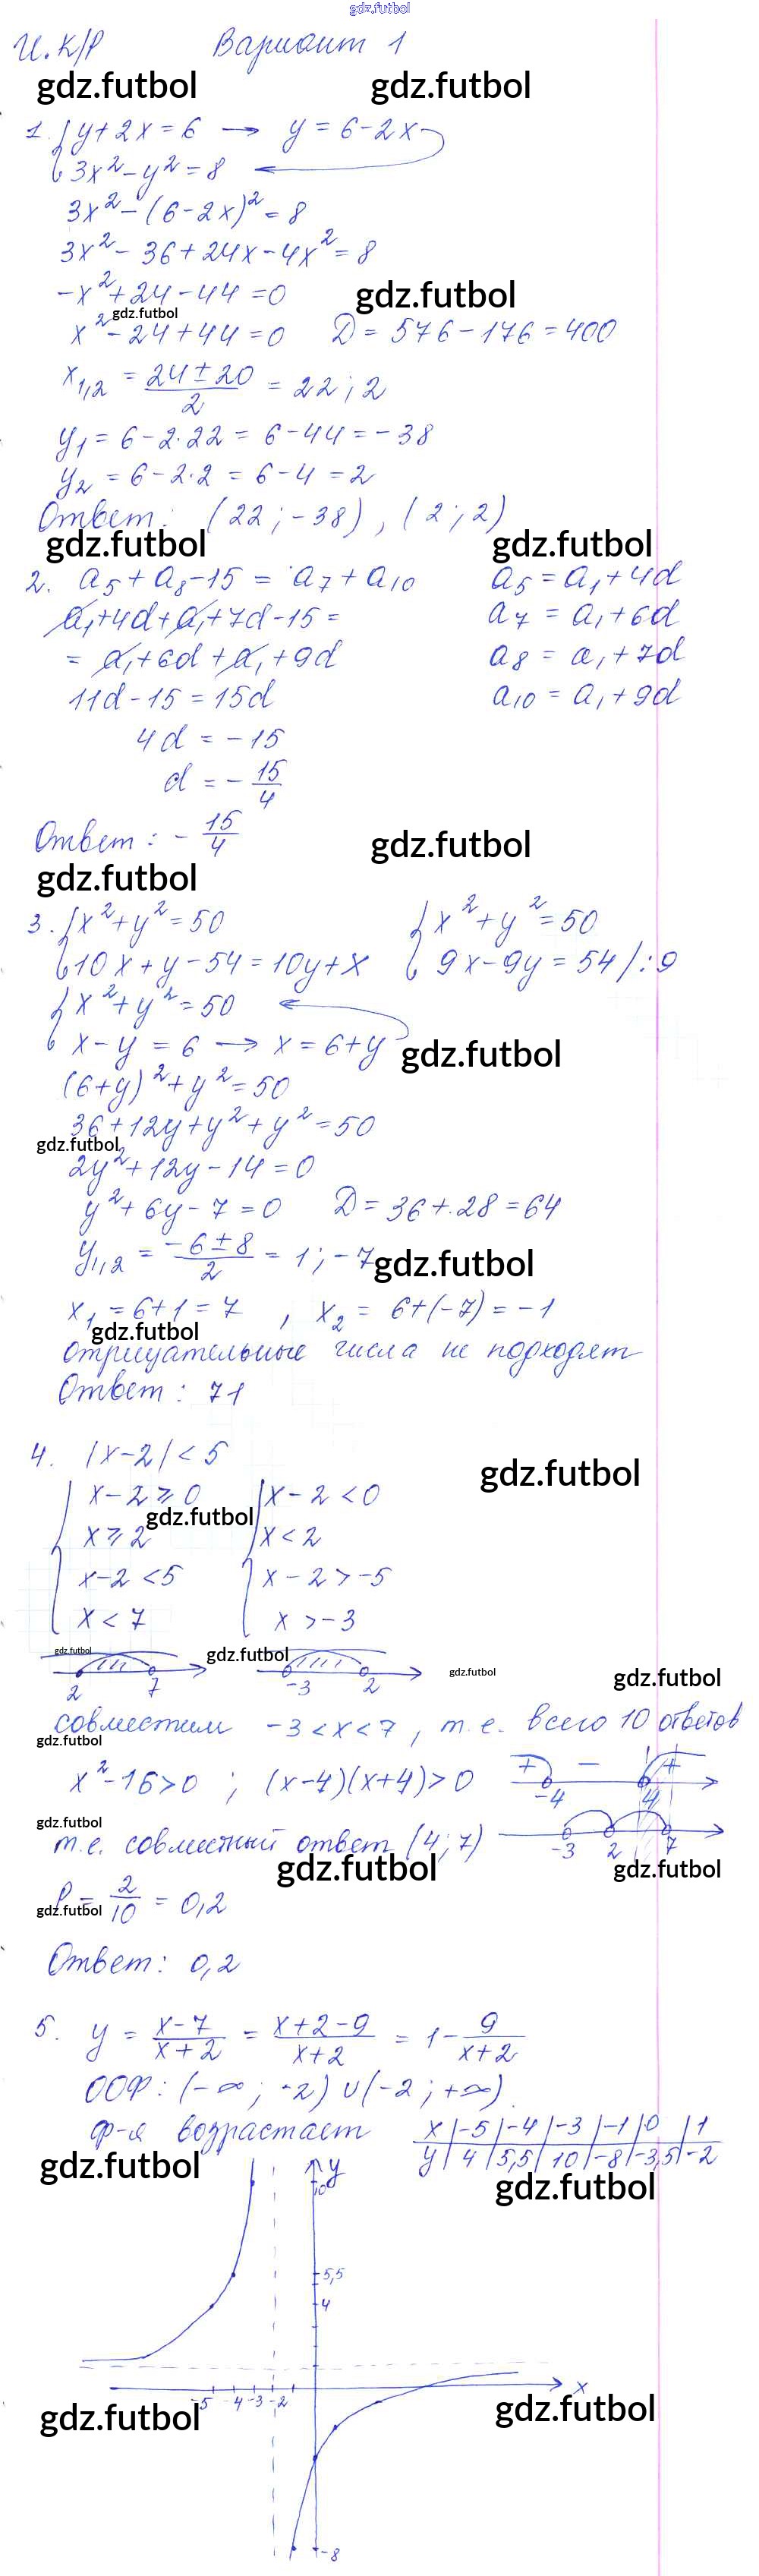 gdz.futbol
И. К/Р Вариант 1
gdz.futbol gdz.futbol
1. { y + 2x = 6 → y = 6 - 2x
3x² - y² = 8 ←
3x² - (6 - 2x)² = 8
3x² - 36 + 24x - 4x² = 8
-x² + 24 - 44 = 0 gdz.futbol
gdz.futbol
x² - 24 + 44 = 0 D = 576 - 176 = 400
x₁,₂ = (24 ± 20)/2 = 22 ; 2
y₁ = 6 - 2·22 = 6 - 44 = -38
y₂ = 6 - 2·2 = 6 - 4 = 2
Ответ: (22 ; -38), (2 ; 2)
gdz.futbol gdz.futbol
2. a₅ + a₈ - 15 = a₇ + a₁₀ a₅ = a₁ + 4d
a₁ + 4d + a₁ + 7d - 15 = a₇ = a₁ + 6d
= a₁ + 6d + a₁ + 9d a₈ = a₁ + 7d
11d - 15 = 15d a₁₀ = a₁ + 9d
4d = -15
d = -15/4
Ответ: -15/4 gdz.futbol
gdz.futbol
3. { x² + y² = 50 { x² + y² = 50
10x + y - 54 = 10y + x 9x - 9y = 54 /:9
{ x² + y² = 50 ←
x - y = 6 → x = 6 + y gdz.futbol
(6 + y)² + y² = 50
36 + 12y + y² + y² = 50
gdz.futbol
2y² + 12y - 14 = 0
y² + 6y - 7 = 0 D = 36 + 28 = 64
y₁,₂ = (-6 ± 8)/2 = 1 ; -7 gdz.futbol
x₁ = 6 + 1 = 7 , x₂ = 6 + (-7) = -1
gdz.futbol
отрицательные числа не подходят
Ответ: 71
4. |x - 2| < 5 gdz.futbol
{ x - 2 ⩾ 0 { x - 2 < 0
gdz.futbol
x ⩾ 2 x < 2
x - 2 < 5 x - 2 > -5
x < 7 x > -3
gdz.futbol gdz.futbol gdz.futbol gdz.futbol
2 7 -3 2
совместим -3 < x < 7 , т.е. всего 10 ответов
gdz.futbol
x² - 16 > 0 ; (x - 4)(x + 4) > 0 + - +
-4 4
gdz.futbol
т.е. совместный ответ (4 ; 7) -3 2 7
gdz.futbol gdz.futbol
P = 2/10 = 0,2
gdz.futbol
Ответ: 0,2
5. y = (x - 7)/(x + 2) = (x + 2 - 9)/(x + 2) = 1 - 9/(x + 2)
ООФ: (-∞ ; -2) ∪ (-2 ; +∞)
ф-я возрастает x | -5 | -4 | -3 | -1 | 0 | 1
y | 4 | 5,5 | 10 | -8 | -3,5 | -2
gdz.futbol y gdz.futbol
10
5,5
4
-5 -4 -3 -2 x
gdz.futbol gdz.futbol
-8